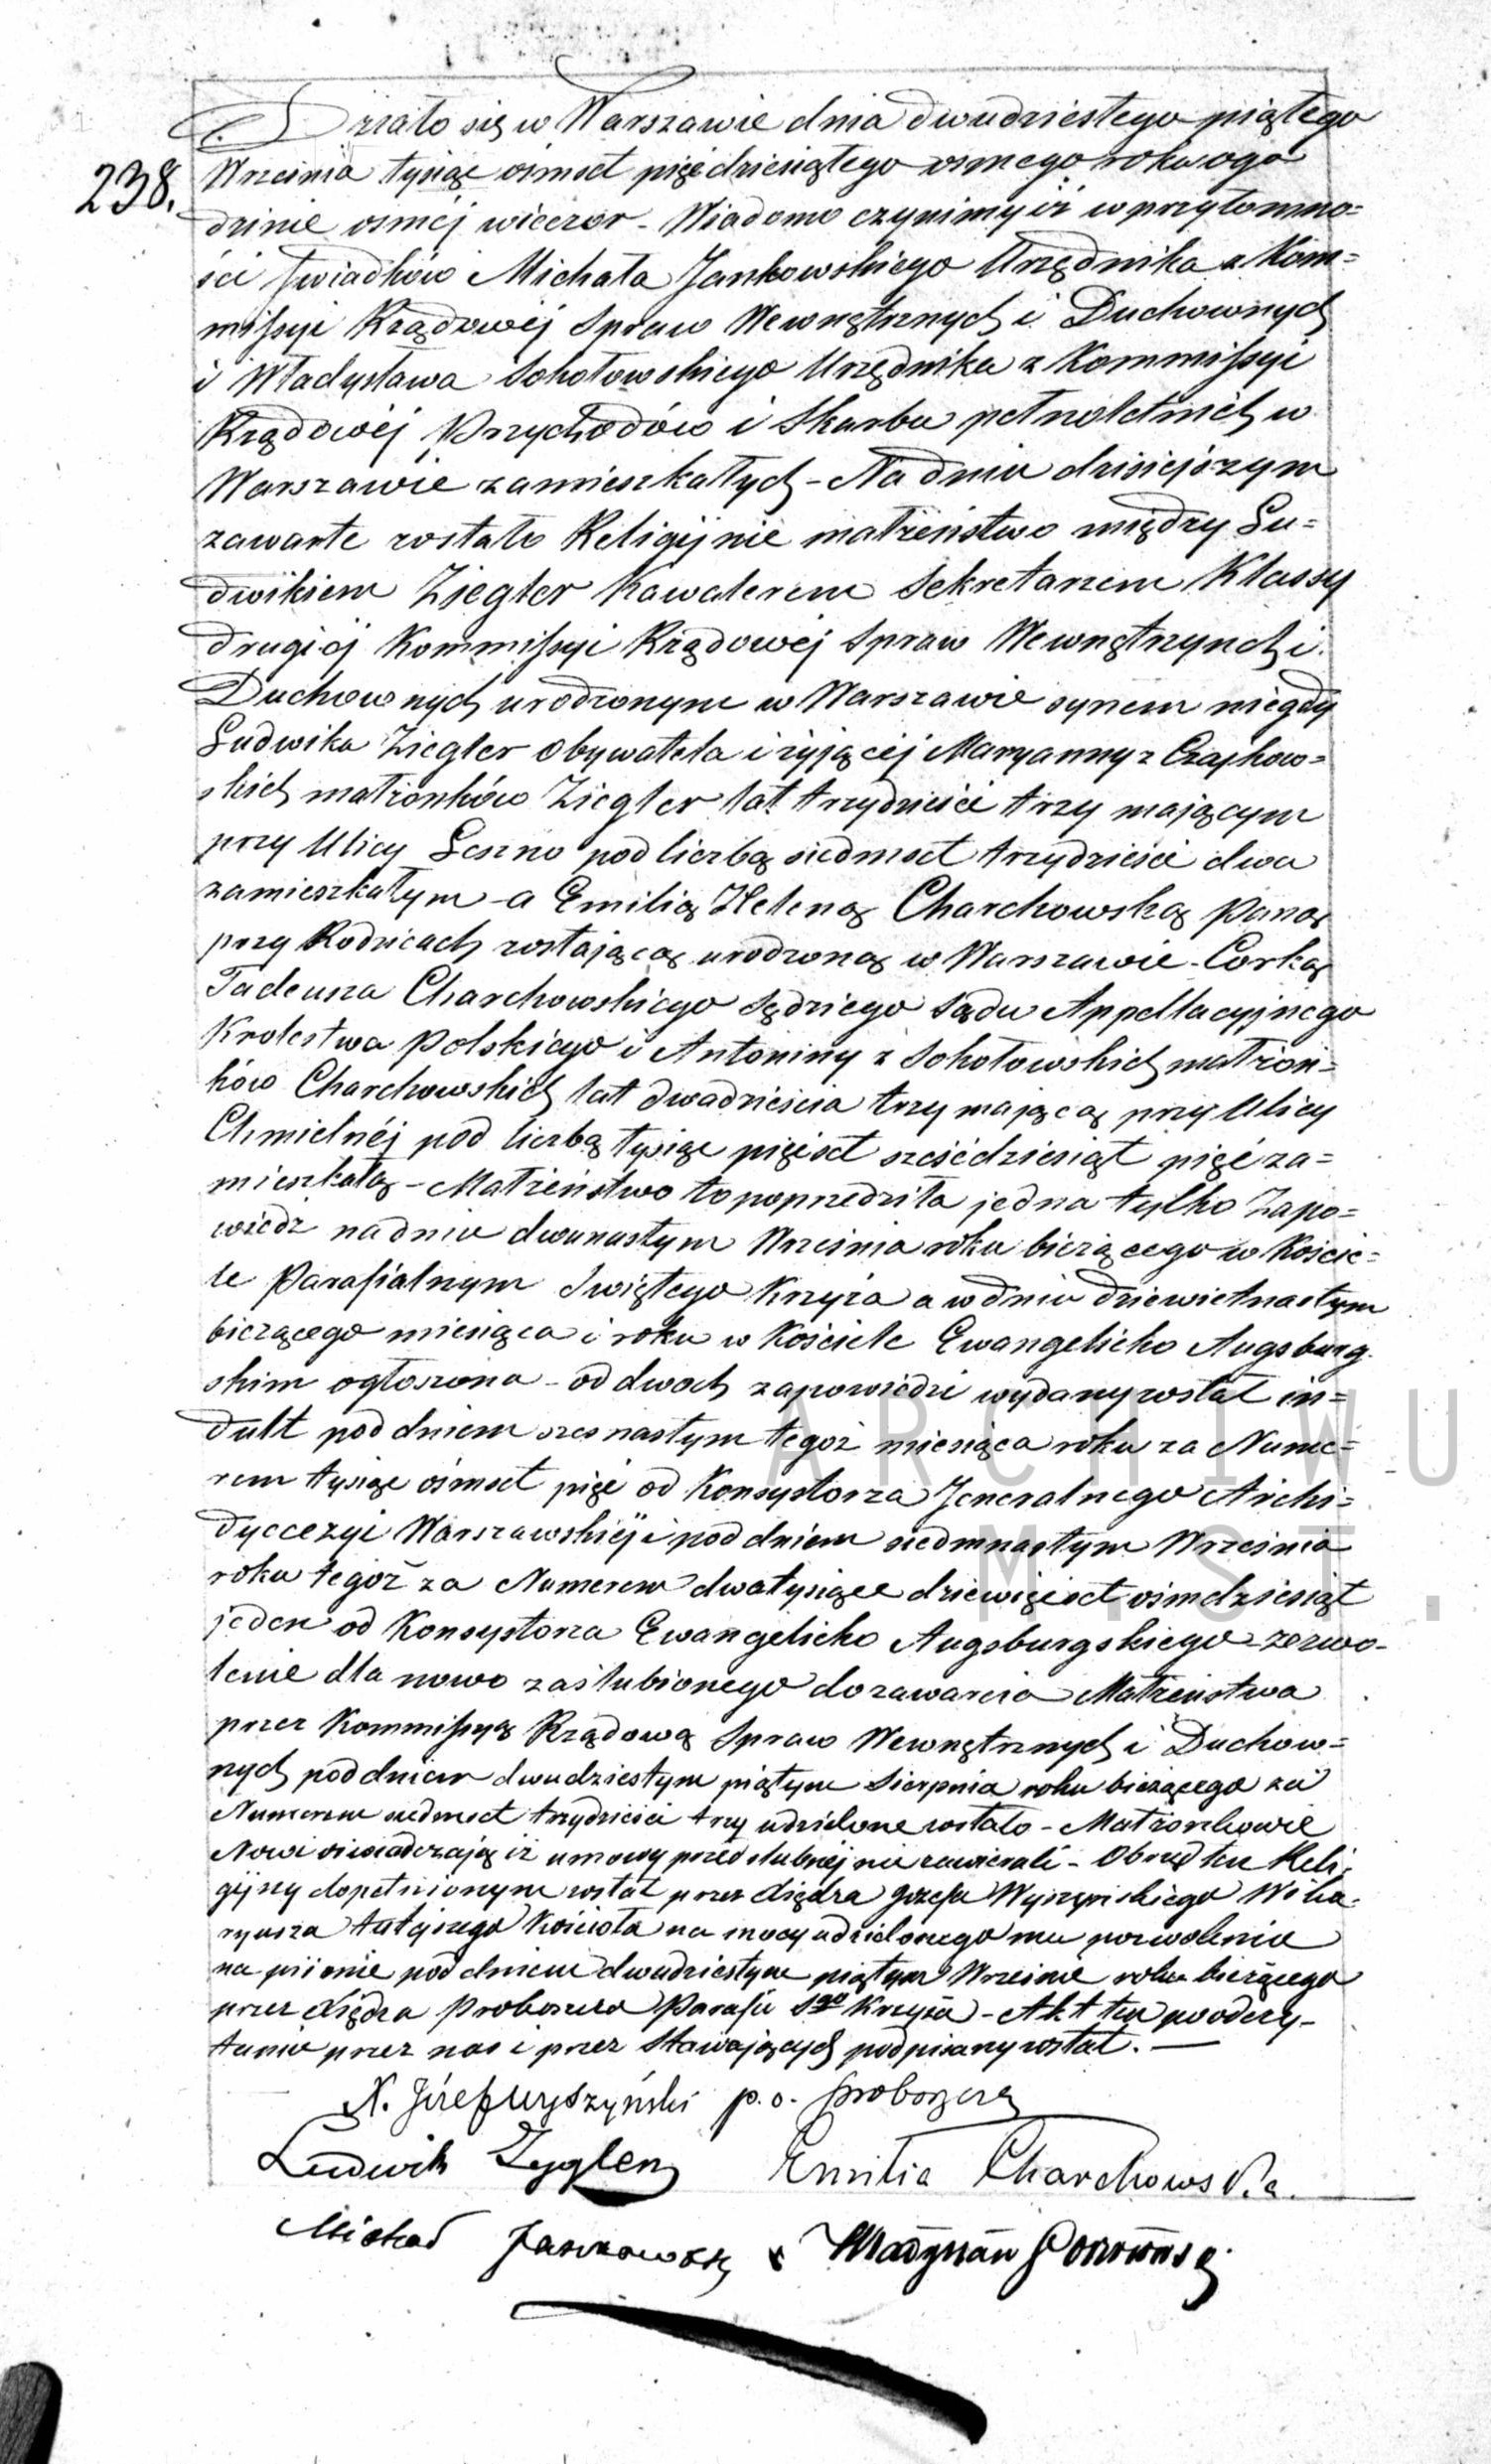 238.
Działo się w Warszawie dnia dwudziestego piątego
Września tysiąc ośmset pięćdziesiątego osmego roku o go
dzinie osmej wieczor - Wiadomo czynimy iż w przytomno=
ści świadków Michała Jankowskiego Urzędnika z Kom=
missyi Rządowéj Spraw Wewnętrznych i Duchownych
i Władysława Sokołowskiego Urzędnika z Kommissyi
Rządowéj Przychodów i Skarbu pełnoletnich w
Warszawie zamieszkałych - Na dniu dzisiejszym
zawarte zostało Religijnie małżeństwo między Lu=
dwikiem Ziegler Kawalerem Sekretarzem Klassy
drugiéj Kommissyi Rządowéj Spraw Wewnętrzynch i
Duchownych urodzonym w Warszawie synem niegdy
Ludwika Ziegler Obywatela i żyjącéj Maryanny z Czajkow=
skich małżonków Ziegler lat trzydzieści trzy mającym
przy Ulicy Leszno pod liczbą siedmset trzydzieści dwa
zamieszkałym - a Emilią Heleną Charchowską Panną
przy Rodzicach zostającą urodzoną w Warszawie - Corką
Tadeusza Charchowskiego Sędziego Sądu Appellacyjnego
Krolestwa Polskiégo i Antoniny z Sokołowskich małżon=
ków Charchowskich lat dwadzieścia trzy mającą przy Ulicy
Chmielnéj pod liczbą tysiąc pięćset sześćdziesiąt pięć za=
mieszkałą - Małżeństwo to poprzedziła jedna tylko Zapo=
wiedz na dniu dwunastym Września roku bieżącego w Koście=
le Parafialnym Swiętego Krzyża a w dniu dziewietnastym
bieżącego miesiąca i roku w Kościele Ewangelicko Augsburg
skim ogłoszona - od dwoch zapowiedzi wydany został in=
dult pod dniem szesnastym tegoż miesiąca roku za Nume=
rem tysiąc ośmset pięć od Konsystorza Jeneralnego Archi=
dyecezyi Warszawskiéj i pod dniem siedmnastym Września
roku tegoż za Numerem dwa tysiące dziewięćset ośmdziesiąt
jeden od Konsystorza Ewangelicko Augsburgskiego - zezwo-
lenie dla nowo zaślubionego do zawarcia Małżeństwa
przez Kommissyą Rządową Spraw Wewnętrznych i Duchow=
nych pod dniem dwudziestym piątym Sierpnia roku bieżącego za
Numerem siedmset trzydzieści trzy udzielone zostało - Małżonkowie
Nowi oświadczają iż umowy przedślubnéj nie zawierali - Obrzęd ten Reli=
gijny dopełnionym został przez Xiędza Józefa Wyszyńskiego Wika-
ryusza tutejszego Kościoła na mocy udzielonego mu pozwolenia
na piśmie pod dniem dwudziestym piątym Września roku bieżącego
przez Xiędza Proboszcza Parafii Sgo Krzyża - Akt ten po odczy-
taniu przez nas i przez Stawających podpisany został. -
X. Józef Wyszyński p. o. Proboszcza
Ludwik Zygler Emilia Charchowska.
Michał Jankowski Władysław Sokołowski
ARCHIWU
M.ST.